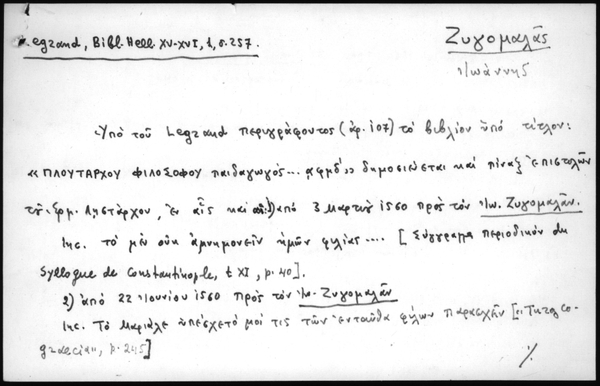 Legrand, Bibl. Hell. XV-XVI, 1, σ. 257.
Ζυγομαλᾶς
Ἰωάννης
Ὑπό τοῦ Legrand περιγράφοντος (ἀρ. 107) τό βιβλίον ὑπό τίτλον:
«ΠΛΟΥΤΑΡΧΟΥ ΦΙΛΟΣΟΦΟΥ παιδαγωγός... ͵αφμδ'» δημοσιεύεται καί πίναξ ἐπιστολῶν
τοῦ Ἑρμ. Ληστάρχου, ἐν αἷς καί 1) ἀπό 3 Μαρτίου 1560 πρός τόν Ἰω. Ζυγομαλᾶν.
Inc. τό μέν οὐκ ἀμνημονεῖν ἡμῶν φιλίας .... [Σύγγραμα περιοδικόν du
Syllogue de Constantinople, t XI, p. 40].
2) ἀπό 22 Ἰουνίου 1560 πρός τόν Ἰω. Ζυγομαλᾶν
Inc. Τό Μαριάλε ὑπέσχετό μοί τις τῶν ἐνταῦθα φίλων παρασχεῖν [«Turcogo-
graecia», p. 245]
%